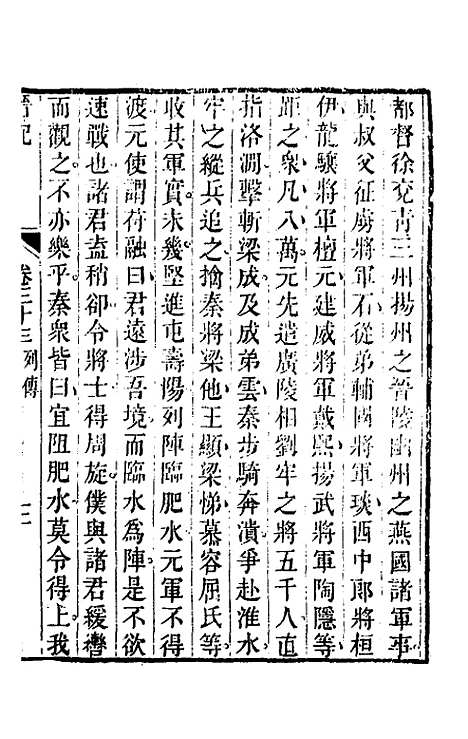 都督徐兗青三州揚州之晉陵幽州之燕國諸軍事
與叔父征虜將軍石從弟輔國將軍琰西中郎將桓
伊龍驤將軍檀元建威將軍戴熙揚武將軍陶隱等
距之衆凡八萬元先遣廣陵相劉牢之將五千人直
指洛澗擊斬梁成及成弟雲秦步騎奔潰爭赴淮水
牢之縱兵追之擒秦將梁他王顯梁悌慕容屈氏等
收其軍實未幾堅進屯壽陽列陣臨肥水元軍不得
渡元使謂苻融曰君遠涉吾境而臨水爲陣是不欲
速戰也諸君盍稍卻令將士得周旋僕與諸君緩轡
而觀之不亦樂乎秦衆皆曰宜阻肥水莫令得上我
晉記 卷三十三 列傳